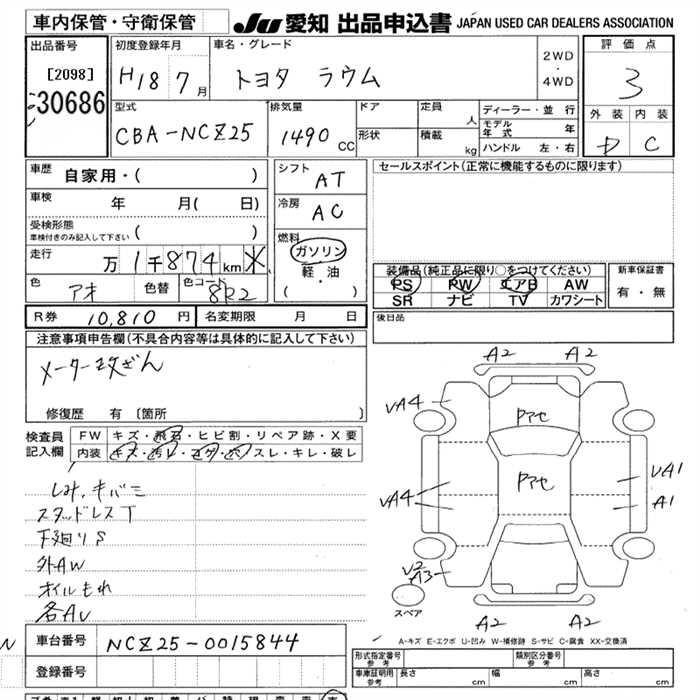 車内保管・守衛保管
JU 愛知 出品申込書 JAPAN USED CAR DEALERS ASSOCIATION
出品番号
[2098]
30686
初度登録年月
H18 7月
車名・グレード
トヨタ ラウム
2WD
・
4WD
評価点
3
外装 内装
D C
型式
CBA-NCZ25
排気量
1490 CC
ドア
形状
定員 人
積載 kg
ディーラー・並行
モデル年式 年
ハンドル 左・右
車歴 自家用・( )
車検 年 月( 日)
受検形態
車検付きのみ記入して下さい ( )
走行 万 1千874km
色 アオ 色替 色コード 8R2
シフト AT
冷房 AC
燃料
ガソリン
軽・油
( )
セールスポイント(正常に機能するものに限ります)
装備品(純正品に限り○をつけてください)
PS PW エアB AW
SR ナビ TV カワシート
新車保証書
有・無
R券 10,810 円
名変期限 月 日
後日品
注意事項申告欄(不具合内容等は具体的に記入して下さい)
メーター改ざん
修復歴 有〔箇所 〕
検査員
記入欄
FW キズ・飛石・ヒビ割・リペア跡・X要
内装 キズ・汚レ・コゲ・穴・スレ・キレ・破レ
しみ、キバミ
スタッドレスT
下廻りS
外AW
オイルもれ
各AU
A2 A2
UA4
Pアセ
Pアセ
UA4
UA1
A1
U2
A3
スペア
A2 A2
A-キズ E-エクボ U-凹み W-補修跡 S-サビ C-腐食 XX-交換済
車台番号 NCZ25-0015844
登録番号
形式指定番号
参考
類別区分番号
参考
車庫証明用
参考
長さ cm 幅 cm 高さ cm